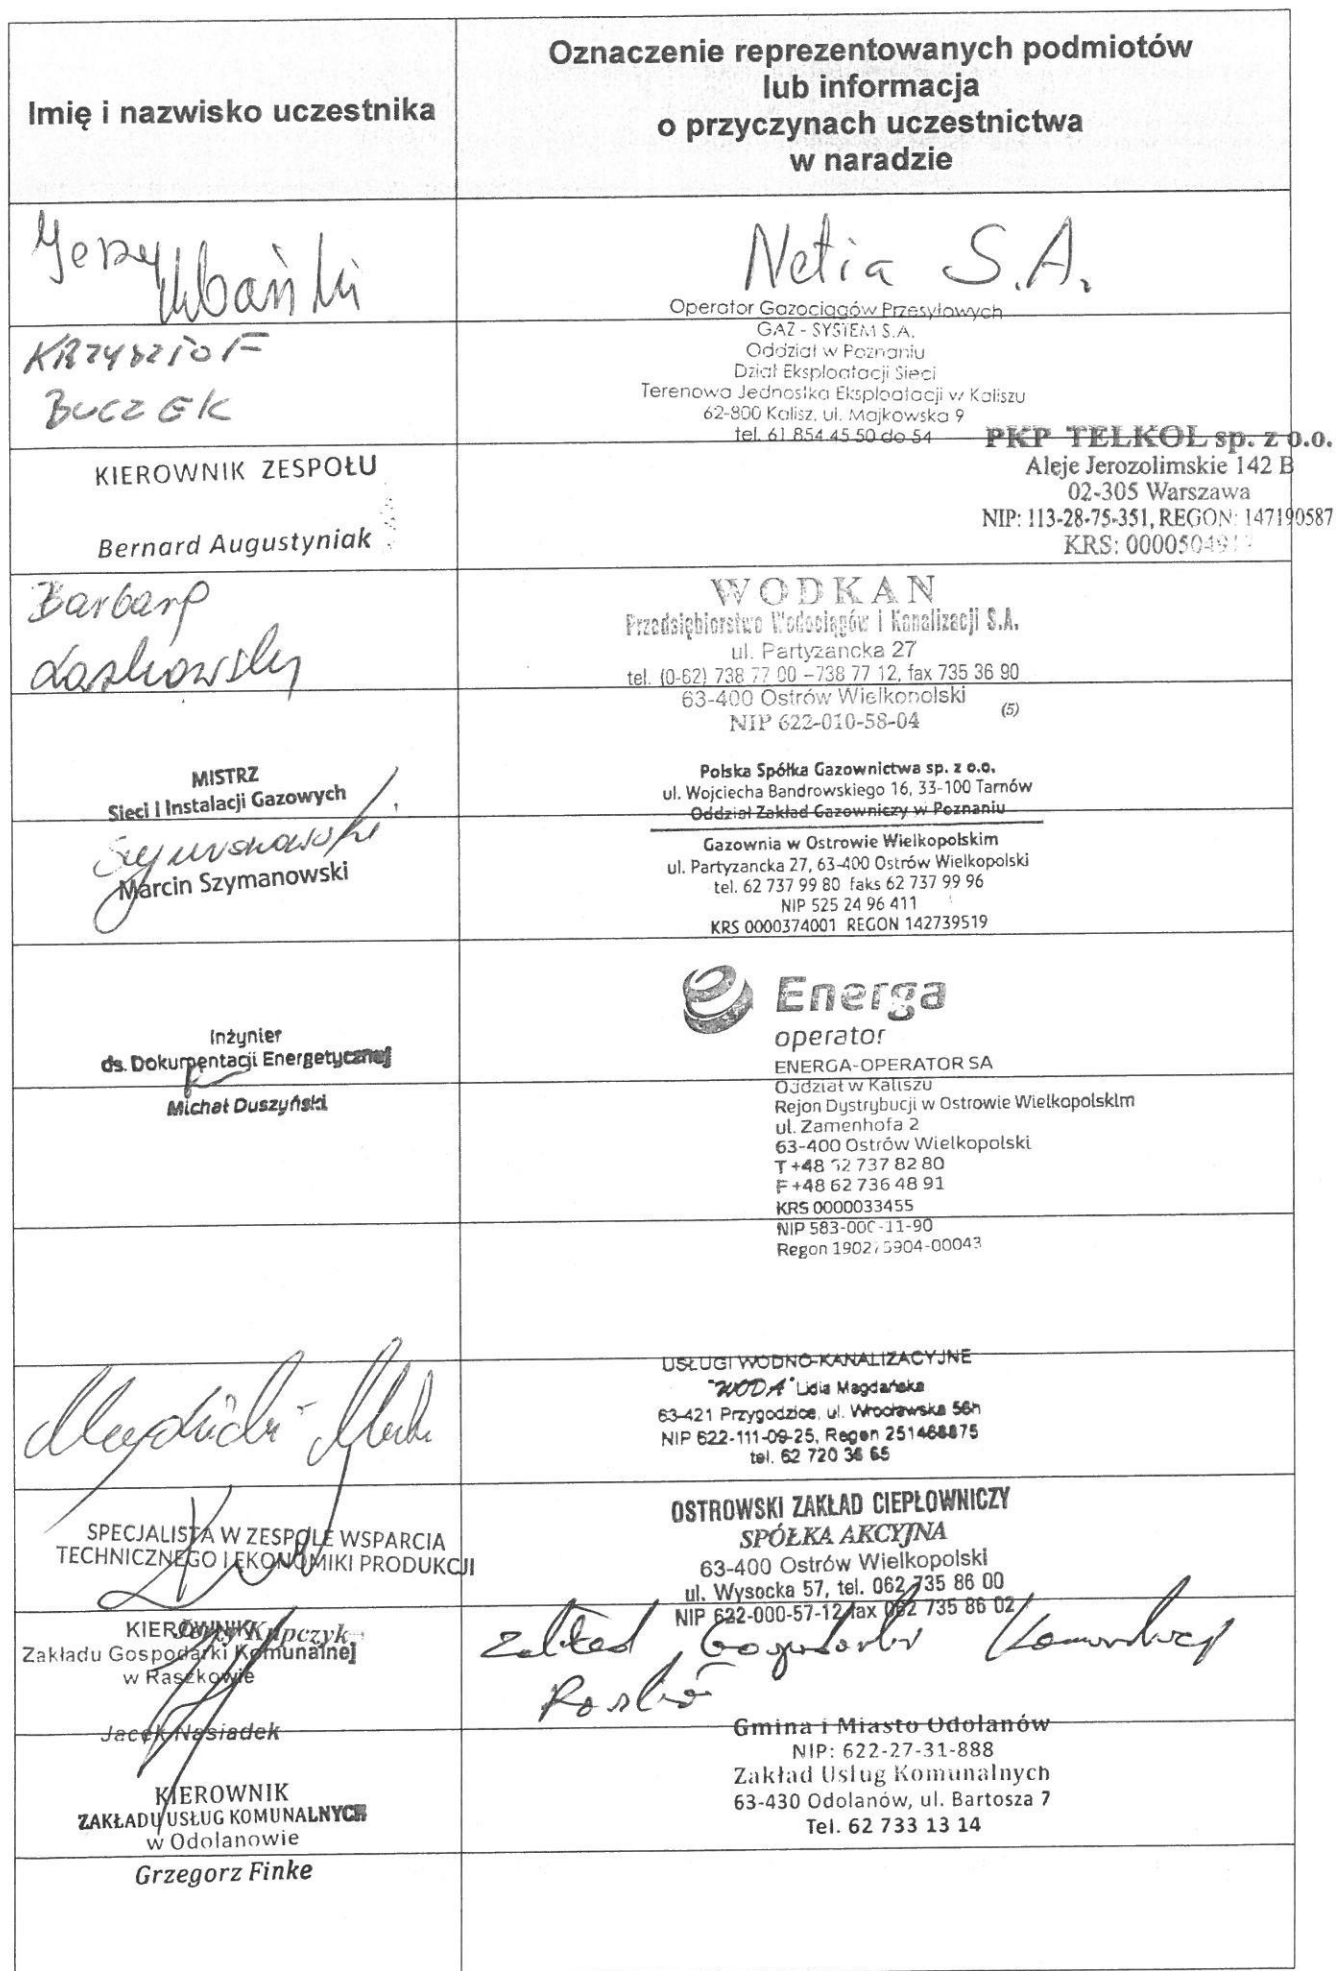 Imię i nazwisko uczestnika
Oznaczenie reprezentowanych podmiotów
lub informacja
o przyczynach uczestnictwa
w naradzie
Jerzy
Urbański
Netia S.A.
KRZYSZTOF
BUCZEK
Operator Gazociągów Przesyłowych
GAZ - SYSTEM S.A.
Oddział w Poznaniu
Dział Eksploatacji Sieci
Terenowa Jednostka Eksploatacji w Kaliszu
62-800 Kalisz, ul. Majkowska 9
tel. 61 854 45 50 do 54
KIEROWNIK ZESPOŁU
Bernard Augustyniak
PKP TELKOL sp. z o.o.
Aleje Jerozolimskie 142 B
02-305 Warszawa
NIP: 113-28-75-351, REGON: 147190587
KRS:
Barbara
Laskowska
WODKAN
Przedsiębiorstwo Wodociągów i Kanalizacji S.A.
ul. Partyzancka 27
tel. (0-62) 738 77 00 –738 77 12, fax 735 36 90
63-400 Ostrów Wielkopolski
NIP 622-010-58-04 (5)
MISTRZ
Sieci i Instalacji Gazowych
Szymanowski
Marcin Szymanowski
Polska Spółka Gazownictwa sp. z o.o.
ul. Wojciecha Bandrowskiego 16, 33-100 Tarnów
Oddział Zakład Gazowniczy w Poznaniu
Gazownia w Ostrowie Wielkopolskim
ul. Partyzancka 27, 63-400 Ostrów Wielkopolski
tel. 62 737 99 80 faks 62 737 99 96
NIP 525 24 96 411
KRS 0000374001 REGON 142739519
Inżynier
ds. Dokumentacji Energetycznej
Michał Duszyński
Energa
operator
ENERGA-OPERATOR SA
Oddział w Kaliszu
Rejon Dystrybucji w Ostrowie Wielkopolskim
ul. Zamenhofa 2
63-400 Ostrów Wielkopolski
T +48 62 737 82 80
F +48 62 736 48 91
KRS 0000033455
NIP 583-000-11-90
Regon
USŁUGI WODNO-KANALIZACYJNE
"WODA" Lidia Magdańska
63-421 Przygodzice, ul. Wrocławska 56h
NIP 622-111-09-25, Regon 251468875
tel. 62 720 36 65
SPECJALISTA W ZESPOLE WSPARCIA
TECHNICZNEGO I EKONOMIKI PRODUKCJI
Jerzy Kupczyk
OSTROWSKI ZAKŁAD CIEPŁOWNICZY
SPÓŁKA AKCYJNA
63-400 Ostrów Wielkopolski
ul. Wysocka 57, tel. 062 735 86 00
NIP 622-000-57-12 fax 062 735 86 02
KIEROWNIK
Zakładu Gospodarki Komunalnej
w Raszkowie
Jacek Nasiadek
Zakład Gospodarki Komunalnej
Raszków
KIEROWNIK
ZAKŁADU USŁUG KOMUNALNYCH
w Odolanowie
Grzegorz Finke
Gmina i Miasto Odolanów
NIP: 622-27-31-888
Zakład Usług Komunalnych
63-430 Odolanów, ul. Bartosza 7
Tel. 62 733 13 14